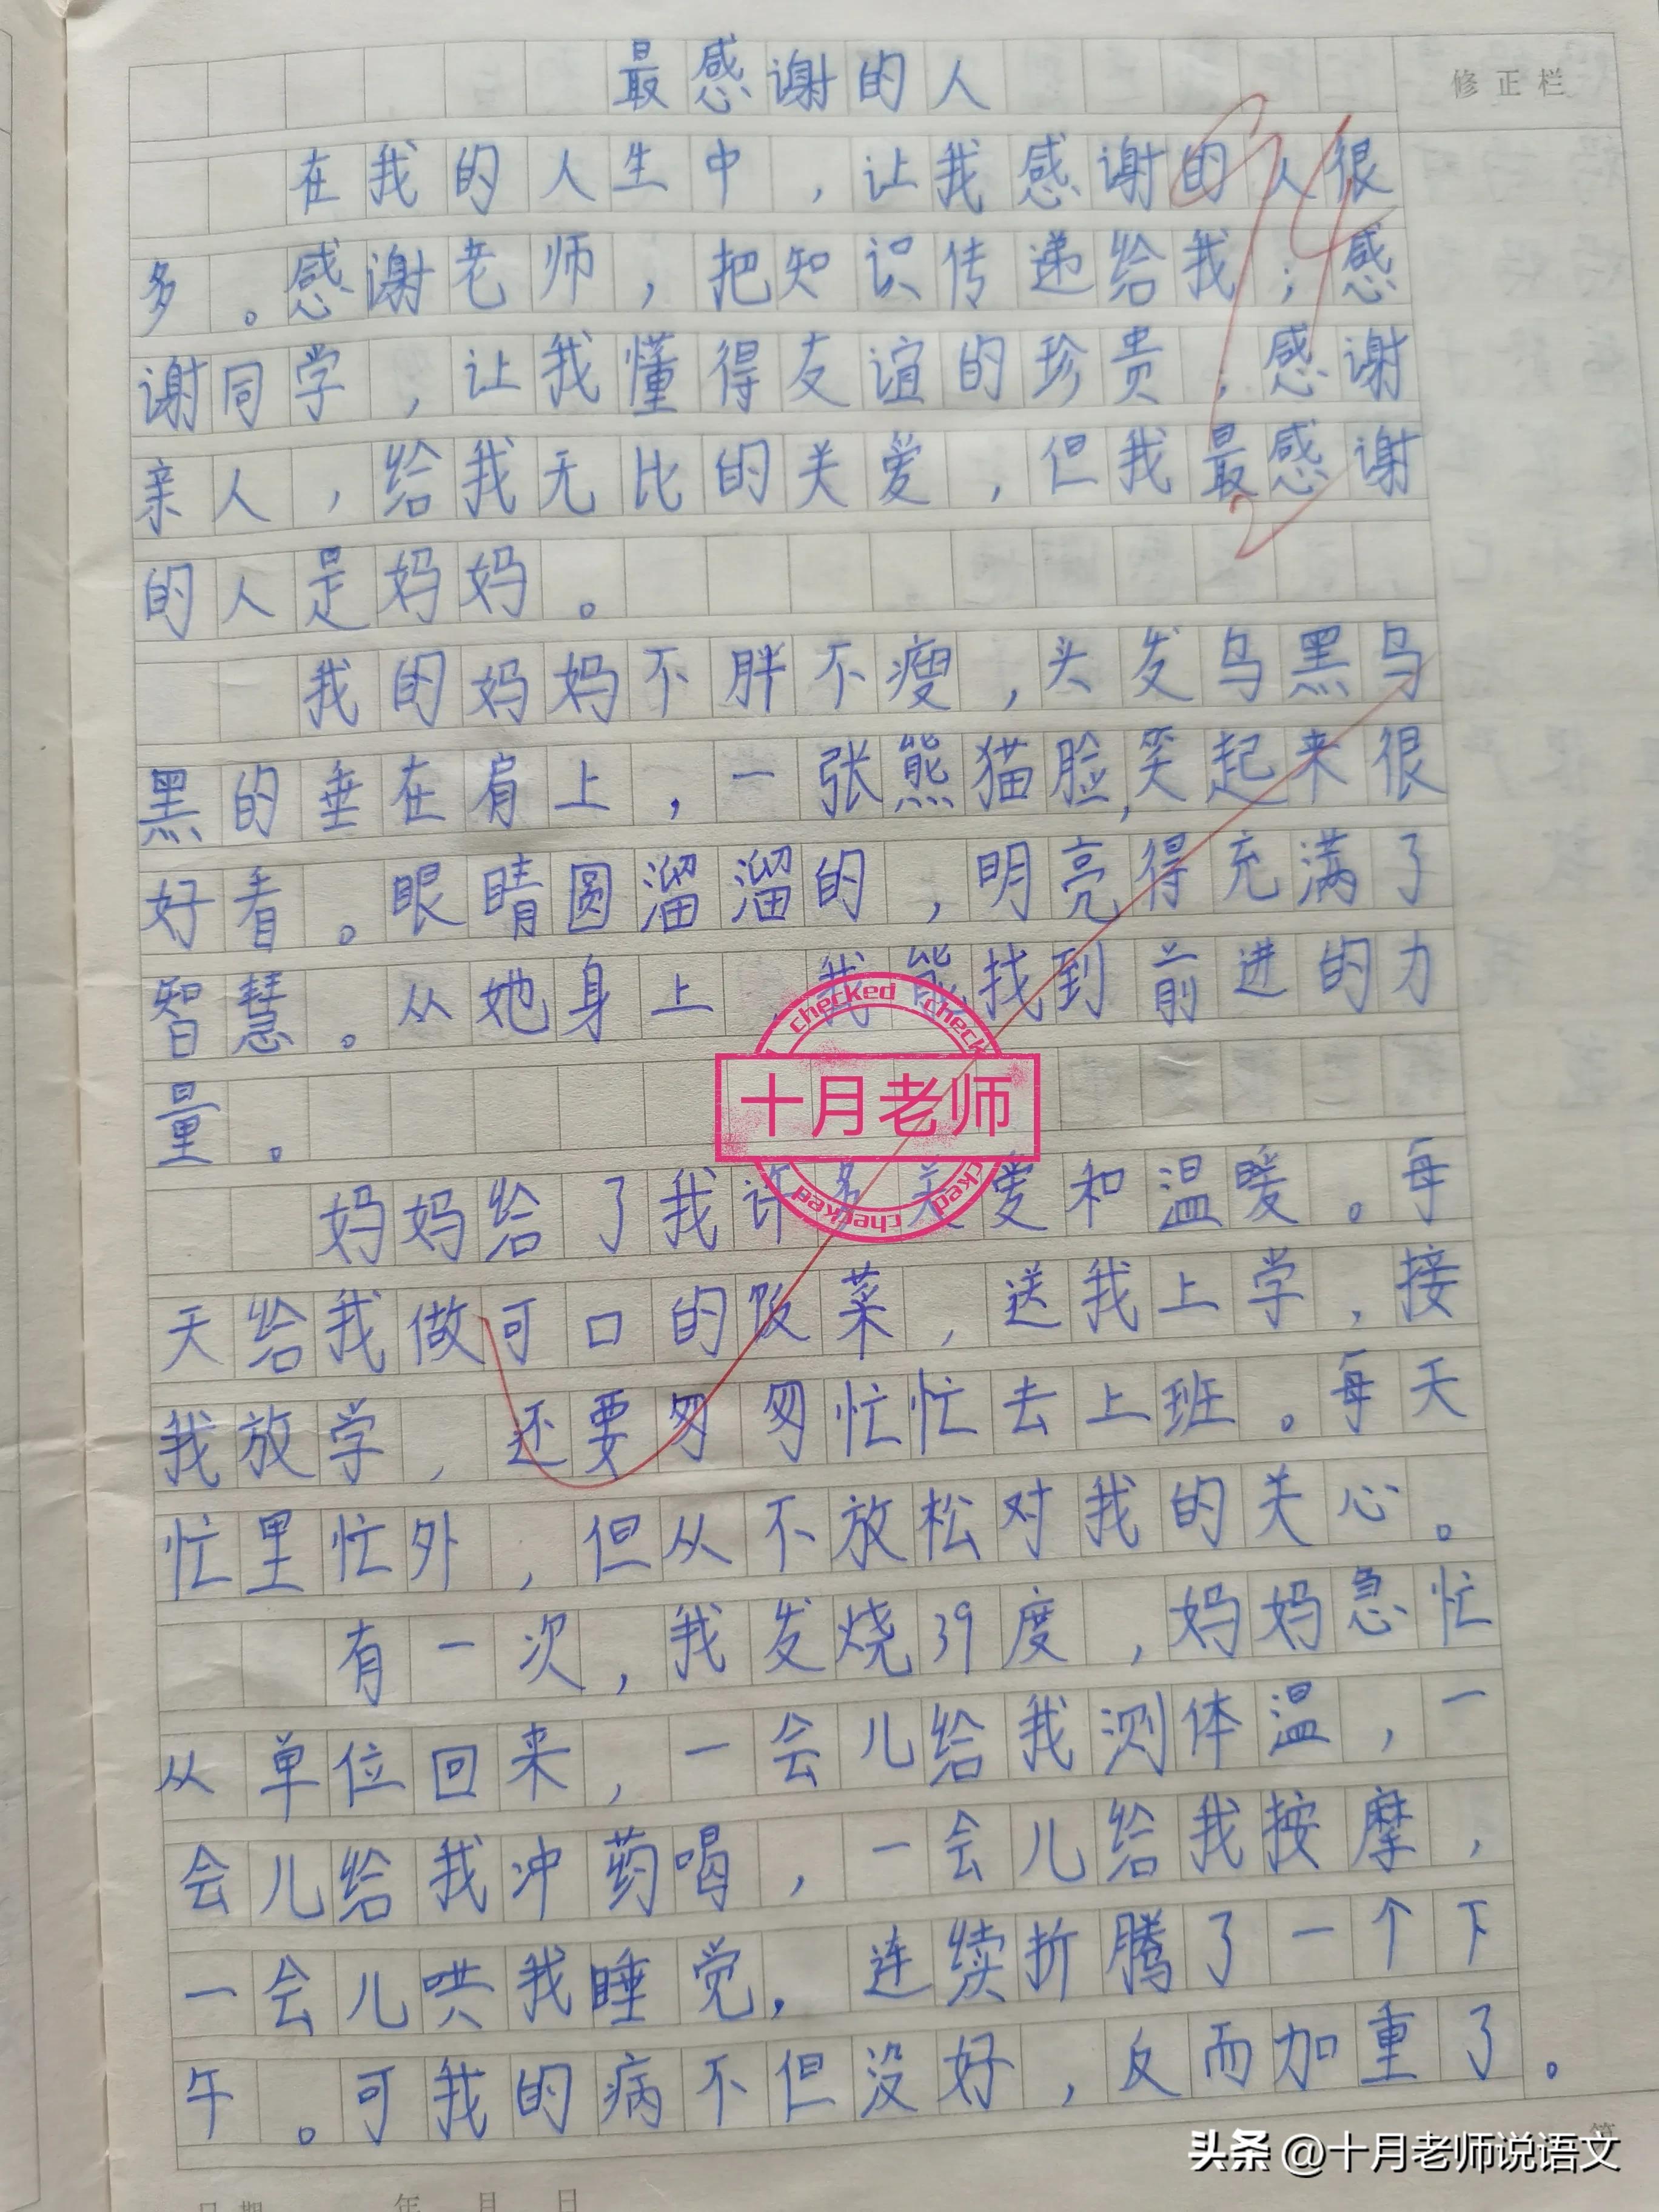 最感谢的人
修正栏
在我的人生中，让我感谢的人很
多。感谢老师，把知识传递给我；感
谢同学，让我懂得友谊的珍贵；感谢
亲人，给我无比的关爱，但我最感谢
的人是妈妈。
我的妈妈不胖不瘦，头发乌黑乌
黑的垂在肩上，一张熊猫脸，笑起来很
好看。眼睛圆溜溜的，明亮得充满了
智慧。从她身上，我能找到前进的力
量。
checked check
十月老师
checked checked
妈妈给了我许多关爱和温暖。每
天给我做可口的饭菜，送我上学，接
我放学，还要匆匆忙忙去上班。每天
忙里忙外，但从不放松对我的关心。
有一次，我发烧39度，妈妈急忙
从单位回来，一会儿给我测体温，一
会儿给我冲药喝，一会儿给我按摩，
一会儿哄我睡觉，连续折腾了一个下
午。可我的病不但没好，反而加重了。
头条 @十月老师说语文
年 月 日